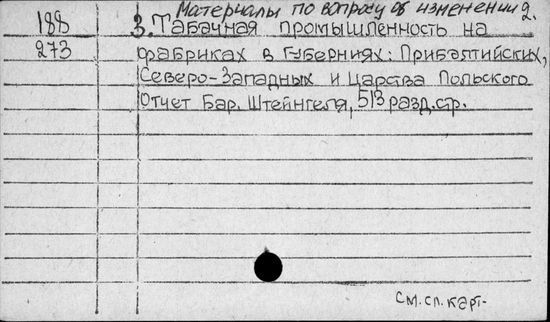 Материалы по вопросу об изменении 2.
188 3. Табачная промышленность на
273 фабриках в губерниях: Прибалтийских,
Северо-Западных и Царства Польского
Отчет Бар. Штейнгеля, 513 разд. стр.
См. сл. карт-